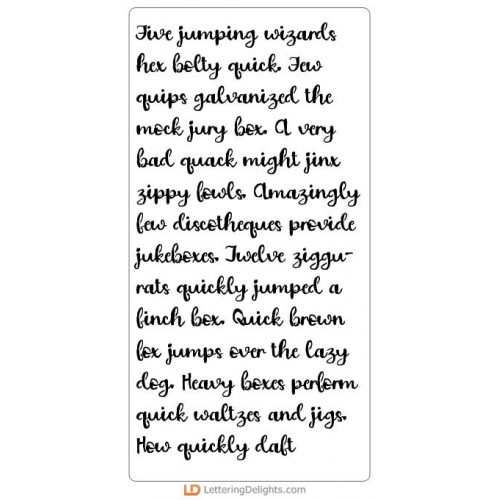 Five jumping wizards
hex bolty quick. Few
quips galvanized the
mock jury box. A very
bad quack might jinx
zippy fowls. Amazingly
few discotheques provide
jukeboxes. Twelve ziggu-
rats quickly jumped a
finch box. Quick brown
fox jumps over the lazy
dog. Heavy boxes perform
quick waltzes and jigs.
How quickly daft
LD LetteringDelights.com